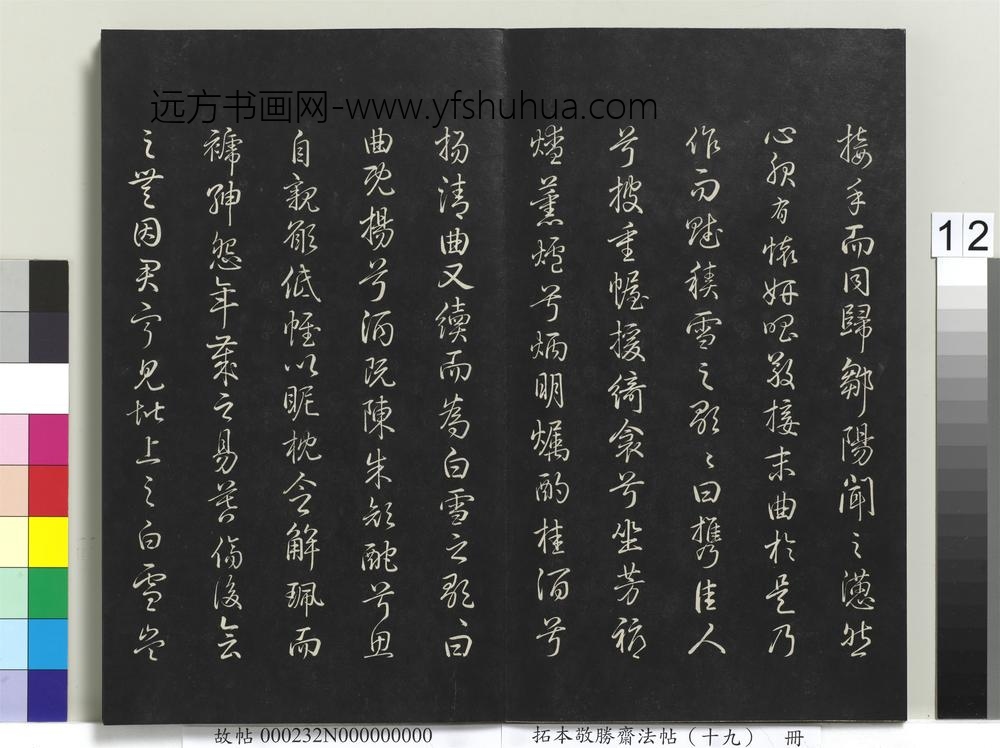 远方书画网-www.yfshuhua.com
接手而同歸鄒陽聞之懣然
心服有懷妍唱敬接末曲於是乃
作而賦積雪之歌〻曰攜佳人
兮披重幄援綺衾兮坐芳褥
燎薰爐兮炳明燭酌桂酒兮
揚清曲又續而為白雪之歌〻曰
曲既揚兮酒既陳朱顏酡兮思
自親願低帷以昵枕念解珮而
褫紳怨年歲之易暮傷後會
之無因君寧見階上之白雪豈
12
故帖 000232N000000000
拓本敬勝齋法帖（十九） 冊